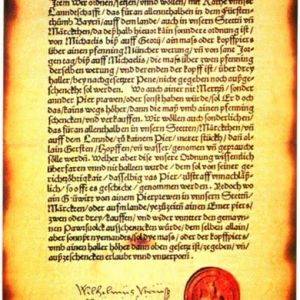 Item Wer ordnen/setzen/und wollen/mit Rathe unnser
Lanndschafft/das für an allenthalben in dem Fürsten
thumb Bayrn/auff dem lande/auch in unsern Stettn vn
Märckthen/da deßhalb hieuor kain sonndere ordnung ist/
von Michaelis biß auff Georij/ain mass oder kopff piers
über ainen pfenning Müncher werung/vn von sant Jor-
gen tag/biß auff Michaelis/die mass über zwen pfenning
derselben werung/vnd derenden der kopff ist/über drey
haller/bey nachgesetzter Pene/nicht gegeben noch außge-
schenckht sol werden. Wo auch ainer nit Mertzn/sonder
annder Pier prawen/oder sonst haben würde/sol Er doch
das/kains wegs höher/dann die maß vmb ainen pfenning
schencken/vnd verkauffen. Wir wöllen auch sonderlichen/
das für an allenthalben in unsern Stetten/Märckthen/vn
auff dem Lannde/zu kainem Pier/merer stückh/dañ al-
lain Gersten/Hopffen/vñ wasser/genomen vñ gepraucht
sölle werdñ. Welher aber dise vnsere Ordnung wissentlich
überfaren vnnd nit hallten wurde/dem sol von seiner ge-
richtzöbrigkait/dasselbig vas Pier/zůstraff vnnachläß-
lich/so offt es geschicht/genommen werden. Redoch wo
ain Güwirt von ainem Pierprewen in vnnsern Stettn/
Märckten/oder aufm lande/yezůzeitn ainen Emer piers/
zwen oder drey/kauffen/vnd wider vnntter den gemaynn-
en Pawrsuolck ausschenncken würde/dem selben allain/
aber sonnst nyemandes/sol dye mass/oder der kopff piers/
vmb ainen haller höher dann oben gesetzt ist/ze geben/vñ
außzeschencken erlaubt vnnd unuerpotñ.